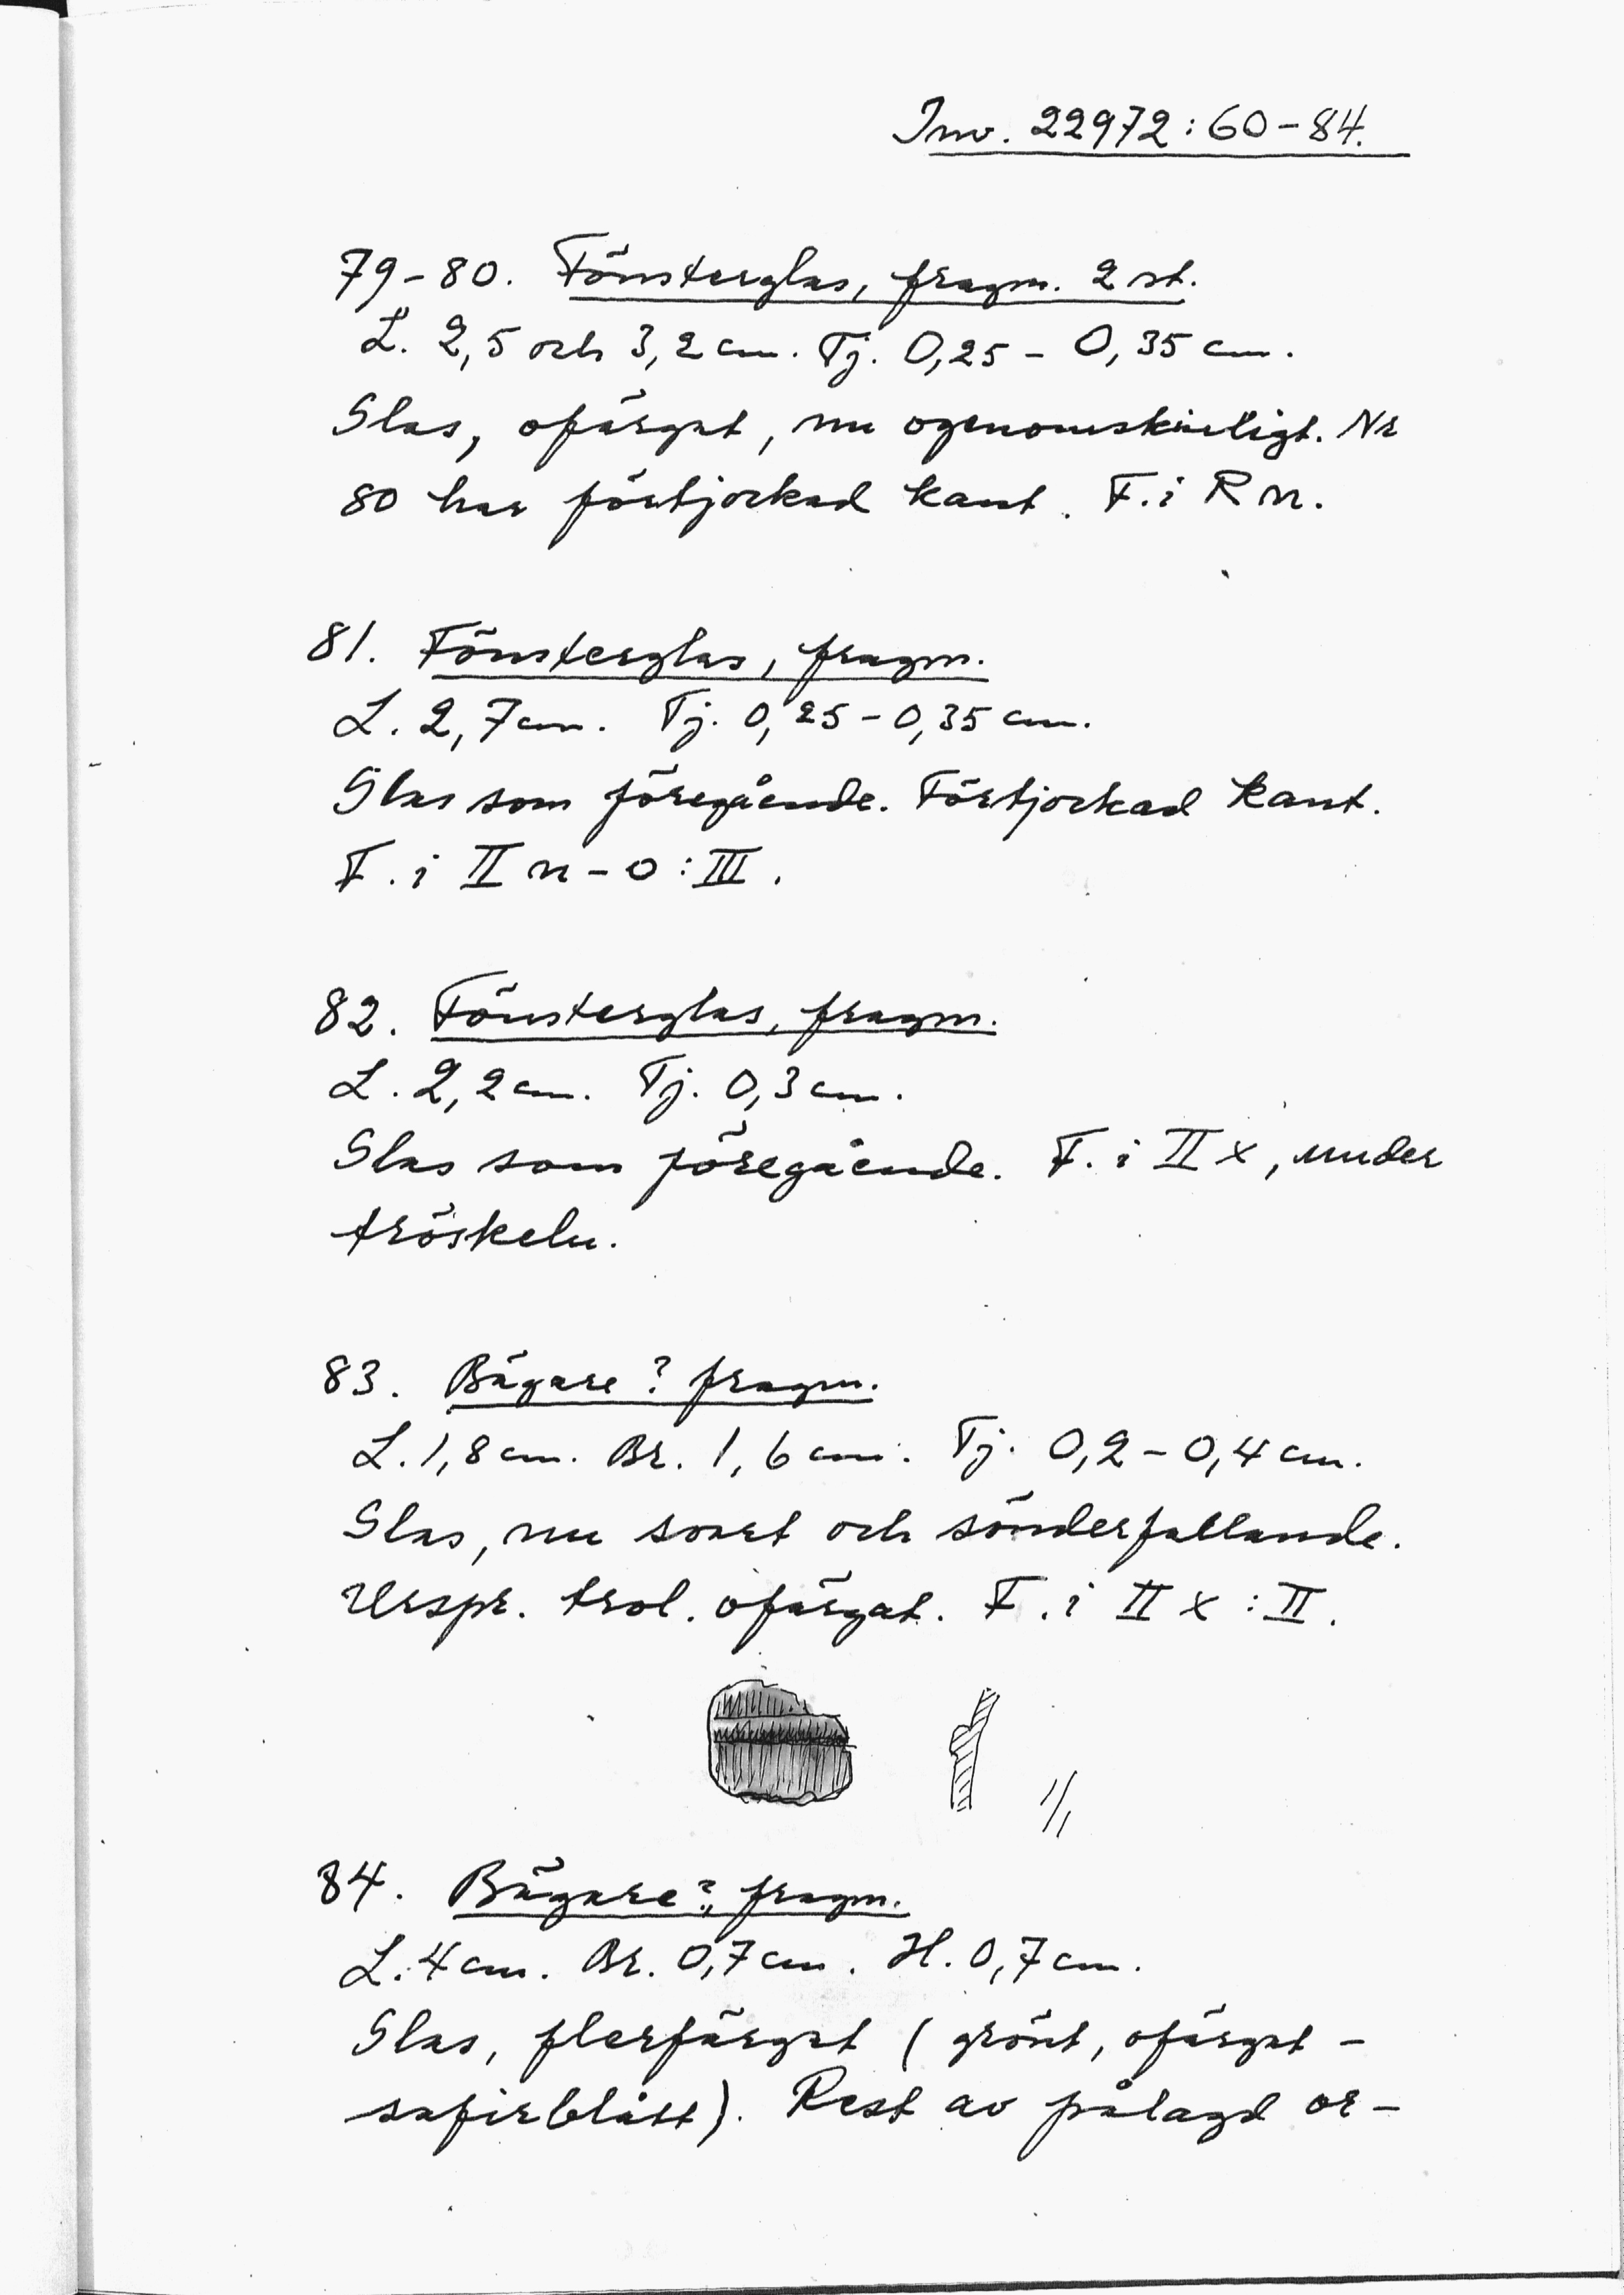 Inv. 22972:60-84.
79-80. Fönsterglas, fragm. 2 st.
L. 2,5 och 3,2 cm. Tj. 0,25 - 0,35 cm.
Glas, ofärgat, nu ogenomskinligt. Nr
80 har förtjockad kant. F. i R n.
81. Fönsterglas, fragm.
L. 2,7 cm. Tj. 0,25-0,35 cm.
Glas som föregående. Förtjockad kant.
F. i II n-o:III.
82. Fönsterglas, fragm.
L. 2,2 cm. Tj. 0,3 cm.
Glas som föregående. F. i II x, under
tröskeln.
83. Bägare? fragm.
L. 1,8 cm. Br. 1,6 cm. Tj. 0,2-0,4 cm.
Glas, nu svart och sönderfallande.
Urspr. trol. ofärgat. F. i II x:II.
1/1
84. Bägare?, fragm.
L. 4 cm. Br. 0,7 cm. H. 0,7 cm.
Glas, flerfärgat (grönt, ofärgat -
safirblått). Rest av pålagd or-